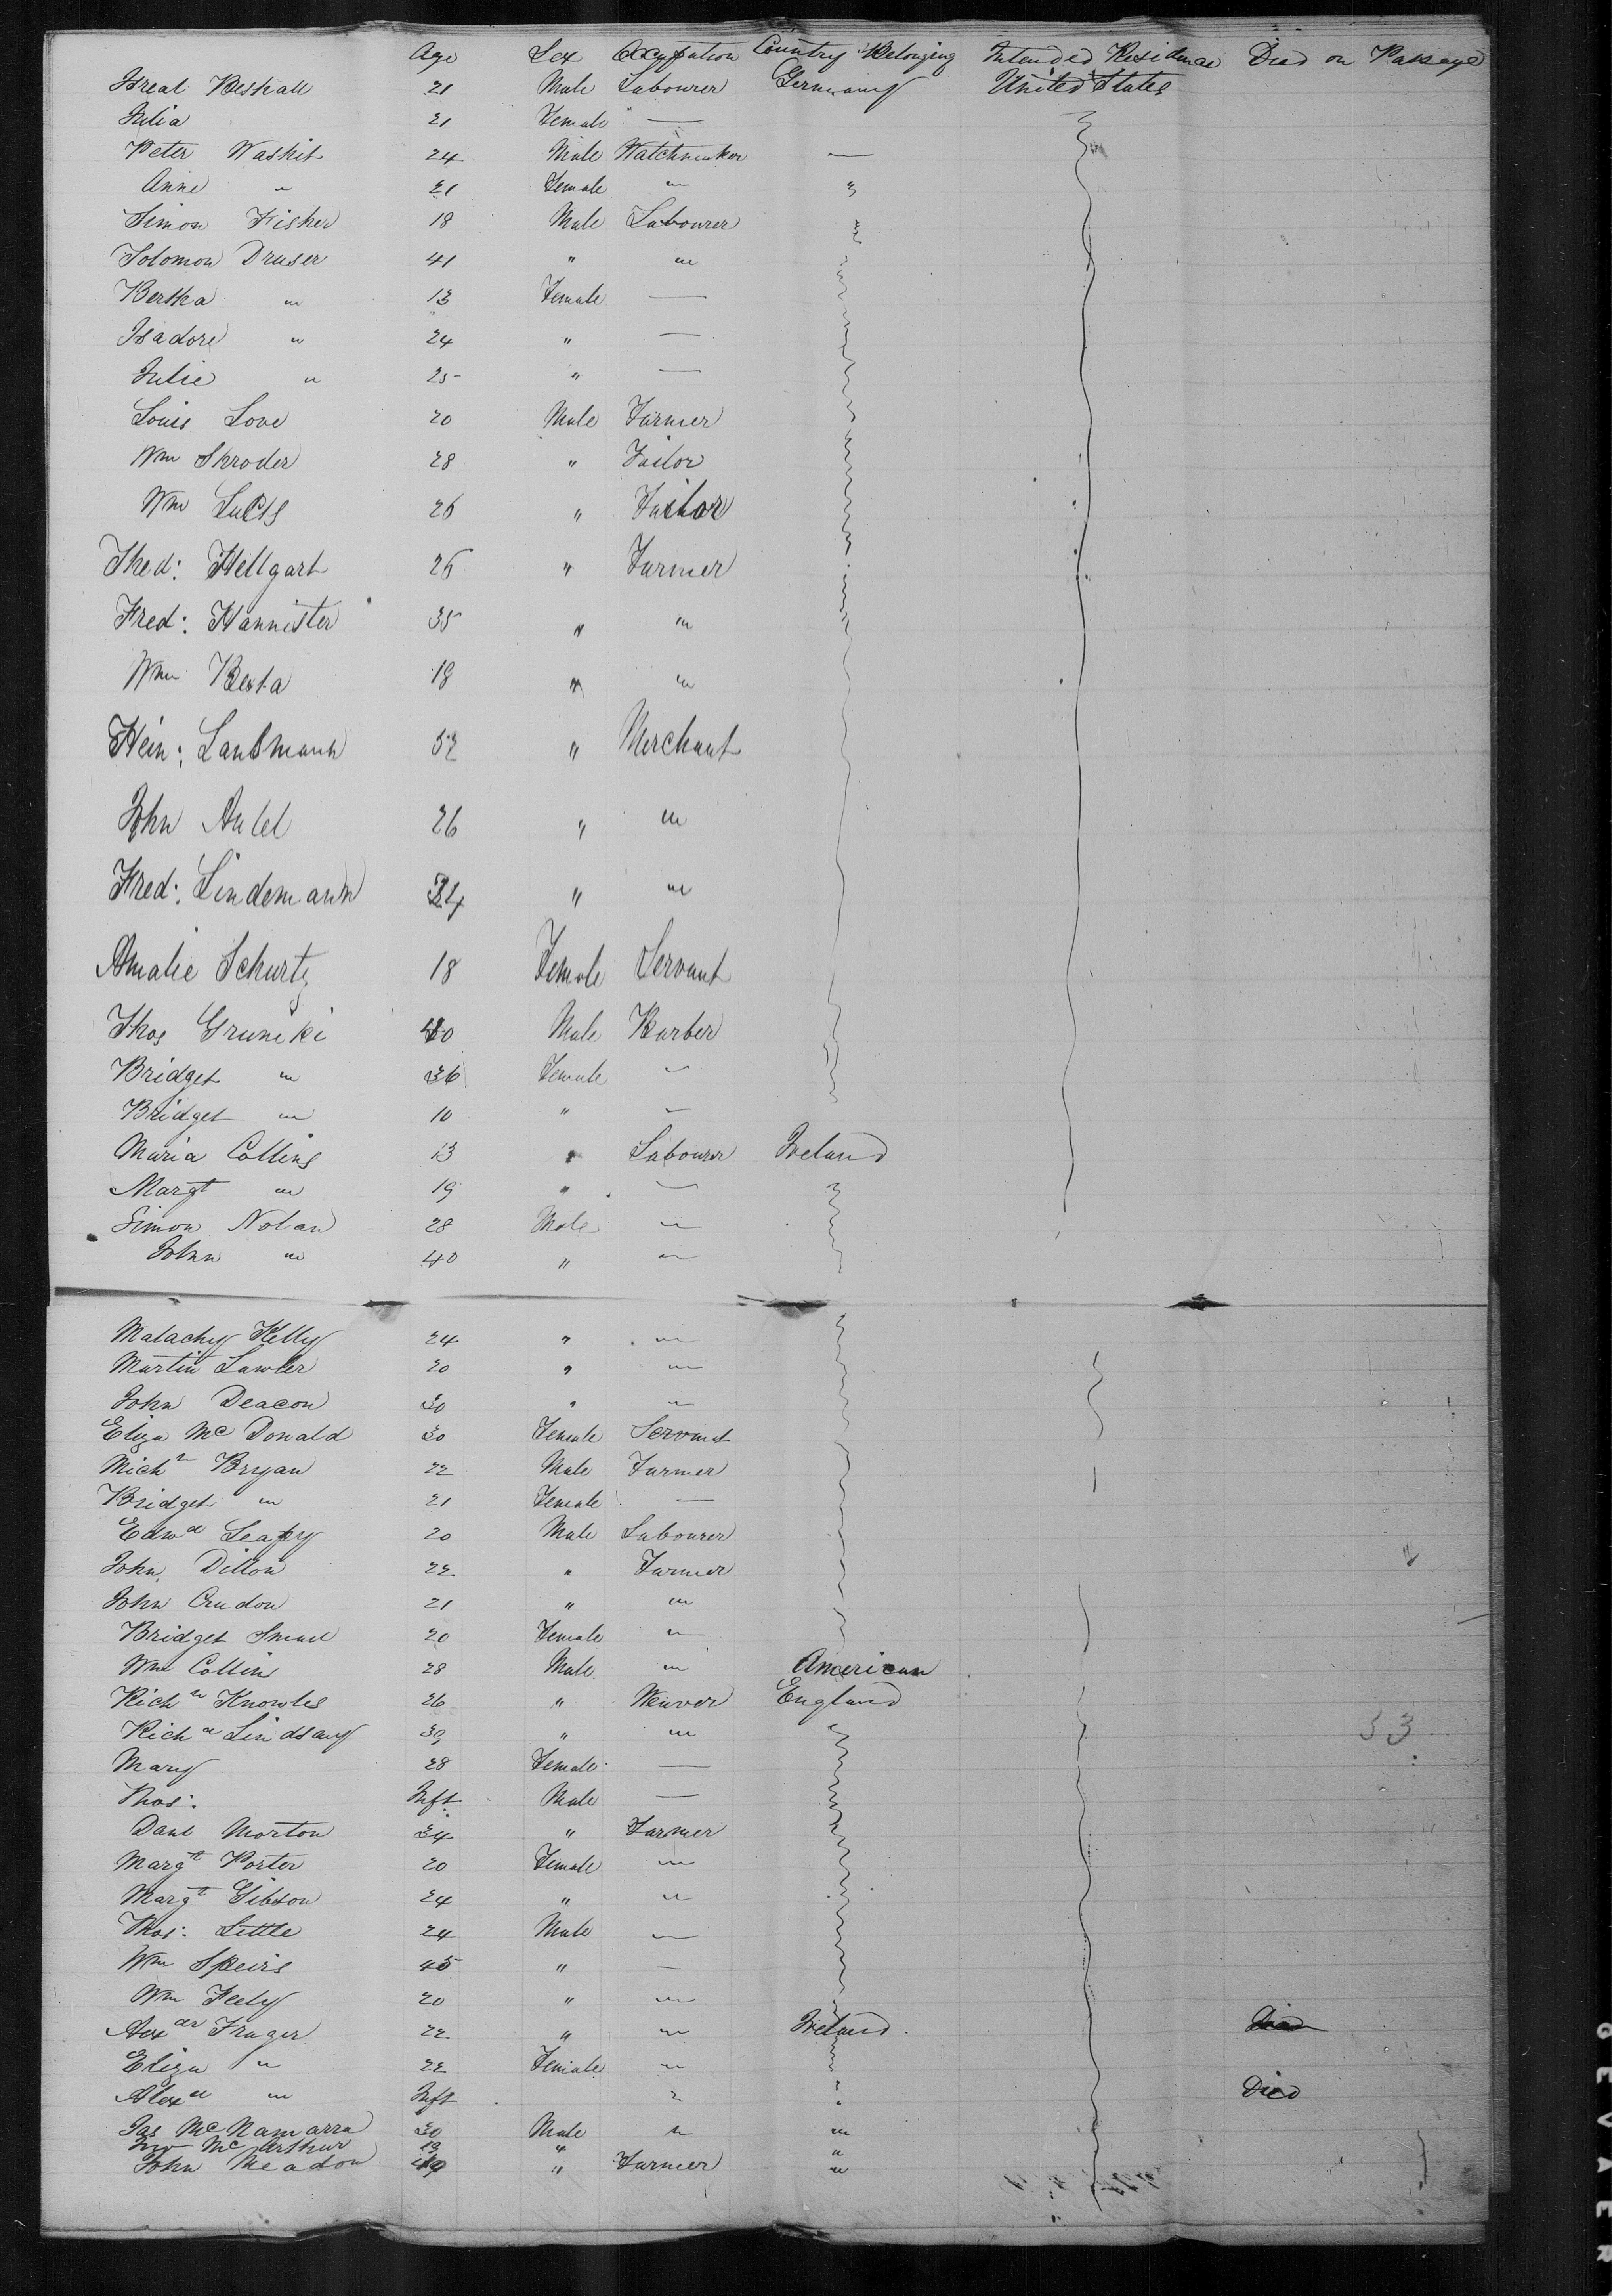 Age Sex Occupation Country Belonging Intended Residence Died on Passage
Isreal Beshall 21 Male Labourer Germany United States
Julia 21 Female —
Peter Washit 24 Male Watchmaker —
Anne " 21 Female " "
Simon Fisher 18 Male Labourer "
Solomon Druser 41 " "
Bertha " 13 Female —
Isadore " 24 " —
Julie " 25 " —
Louis Love 20 Male Farmer
Wm Shroder 28 " Tailor
Wm 26 " Tailor
Thed: Hellgart 26 " Farmer
Fred: Hannister 35 " "
Wm Besta 18 " "
Hein: Landsmann 52 " Merchant
John Aulel 26 " "
Fred: Lindemann 34 " "
Amalie Schurtz 18 Female Servant
Thos Gruneki 40 Male Barber
Bridget " 36 Female "
Bridget " 10 " "
Maria Collins 13 " Labourer Ireland
Margt " 19 " —
Simon Nolan 28 Male "
John " 40 " "
Malachy Kelly 24 " "
Martin Lawler 20 " "
John Deacon 30 " "
Eliza Mc Donald 30 Female Servant
Michl Bryan 22 Male Farmer
Bridget " 21 Female —
Edwd Leahy 20 Male Labourer
John Dillon 22 " Farmer
John Crudon 21 " "
Bridget 20 Female "
Wm Collin 28 Male " American
Richd Knowles 26 " Weaver England
Richd Lindsay 39 " " 53
Mary 28 Female —
Thos: Inft Male —
Danl Morton 34 " Farmer
Margt Porter 20 Female "
Margt Gibson 24 " "
Thos: Little 24 Male —
Wm Speirs 45 " —
Wm Feely 20 " "
Alexdr Frager 22 " " Ireland Died
Eliza " 22 Female "
Alexd " Inft " " Died
Jas McNamarra 30 Male " "
Mc Arthur 19 " "
John Meadon 19 " Farmer "
GEVAER